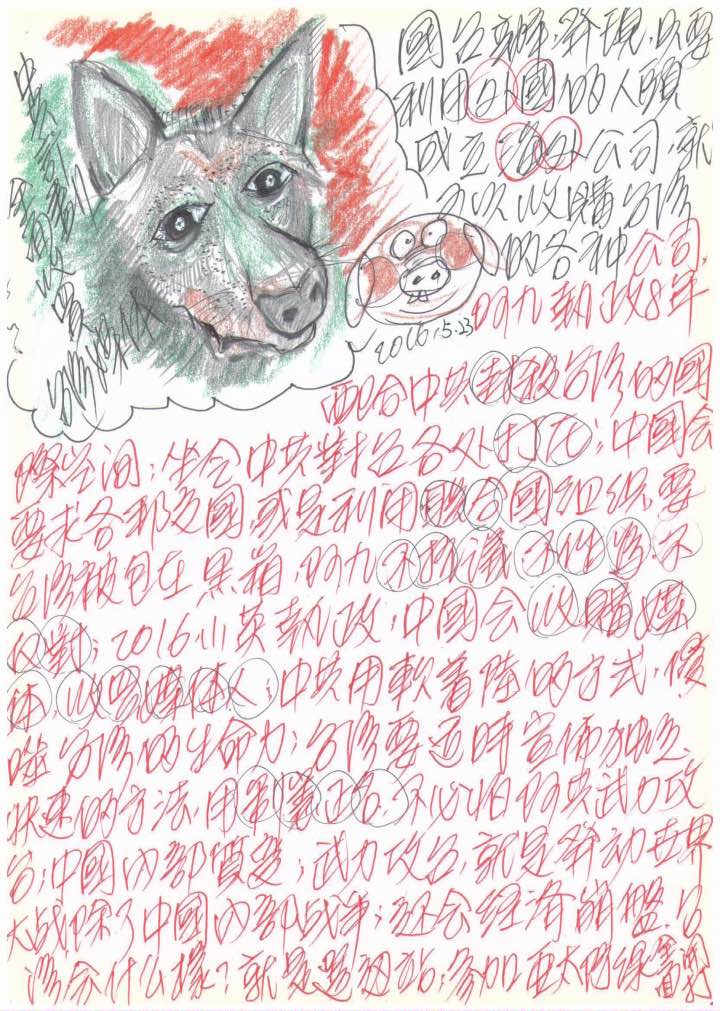 中共計劃
全面收買
台灣媒体
國台辦發現,只要
利用外國的人頭
成立海外公司,就
可以收購台灣
的各种公司,
2016.5.23
阿九執政8年
配合中共封殺台灣的國
際空间;坐令中共對台各处打压;中國会
要求各邦交國,或是利用联合國组织,要
台灣被包在黑箱,阿九不抗議 不作為,不
反對;2016小英執政,中國会收購媒
体,收買媒体人;中共用軟着陸的方式,侵
噬台灣的生命力;台灣要适時宣佈独立,
快速的方法,用制憲正名,不必怕阿共武力攻
台;中國內部質變;武力攻台,就是發动世界
大战,除了中國內部战爭;还会经济崩盤,台
灣会什么樣?就是選边站;參加亚太防線